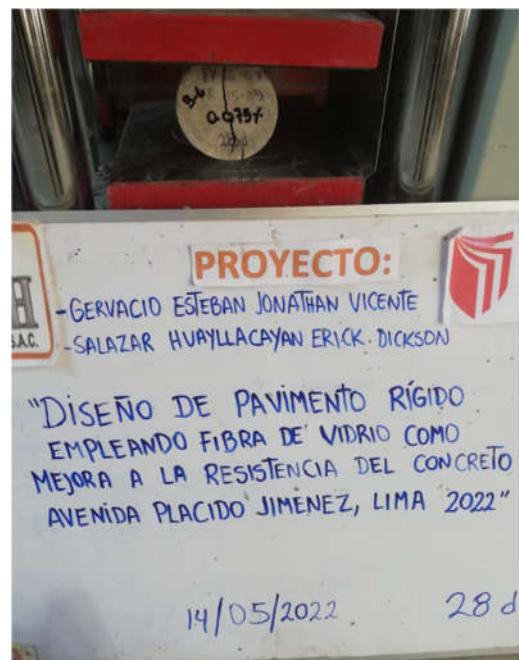 B-6
0.075%
28d
PROYECTO:
H
S.A.C.
-GERVACIO ESTEBAN JONATHAN VICENTE
-SALAZAR HUAYLLACAYAN ERICK. DICKSON
"DISEÑO DE PAVIMENTO RÍGIDO
EMPLEANDO FIBRA DE VIDRIO COMO
MEJORA A LA RESISTENCIA DEL CONCRETO
AVENIDA PLACIDO JIMENEZ, LIMA 2022"
14/05/2022
28 d